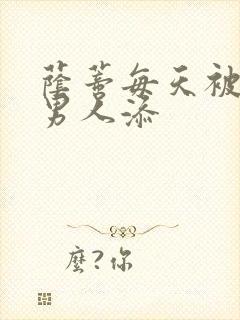 蔭蒂每天被
男人添
麼?你